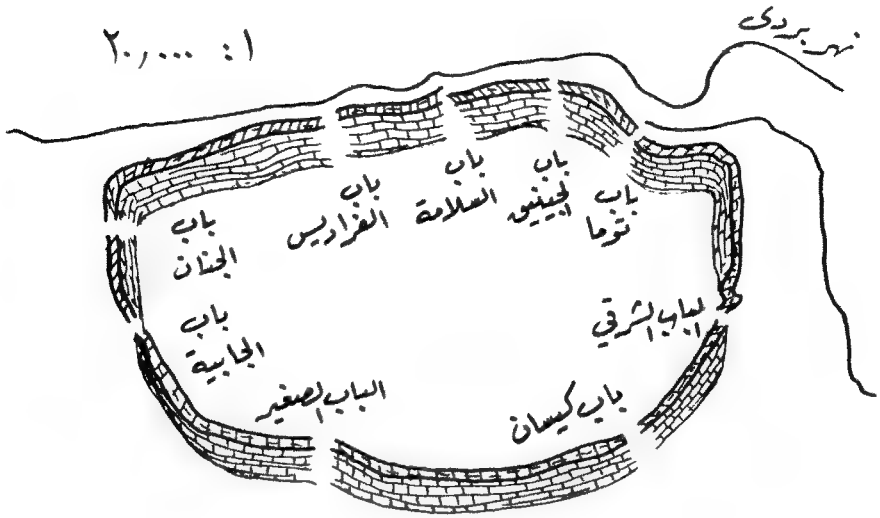 نهر بردى
١ : ٢٠,٠٠٠
باب
توما
باب
الجينيق
باب
السلامة
باب
الفراديس
باب
الجنان
باب
الجابية
الباب الصغير
باب كيسان
الباب الشرقي